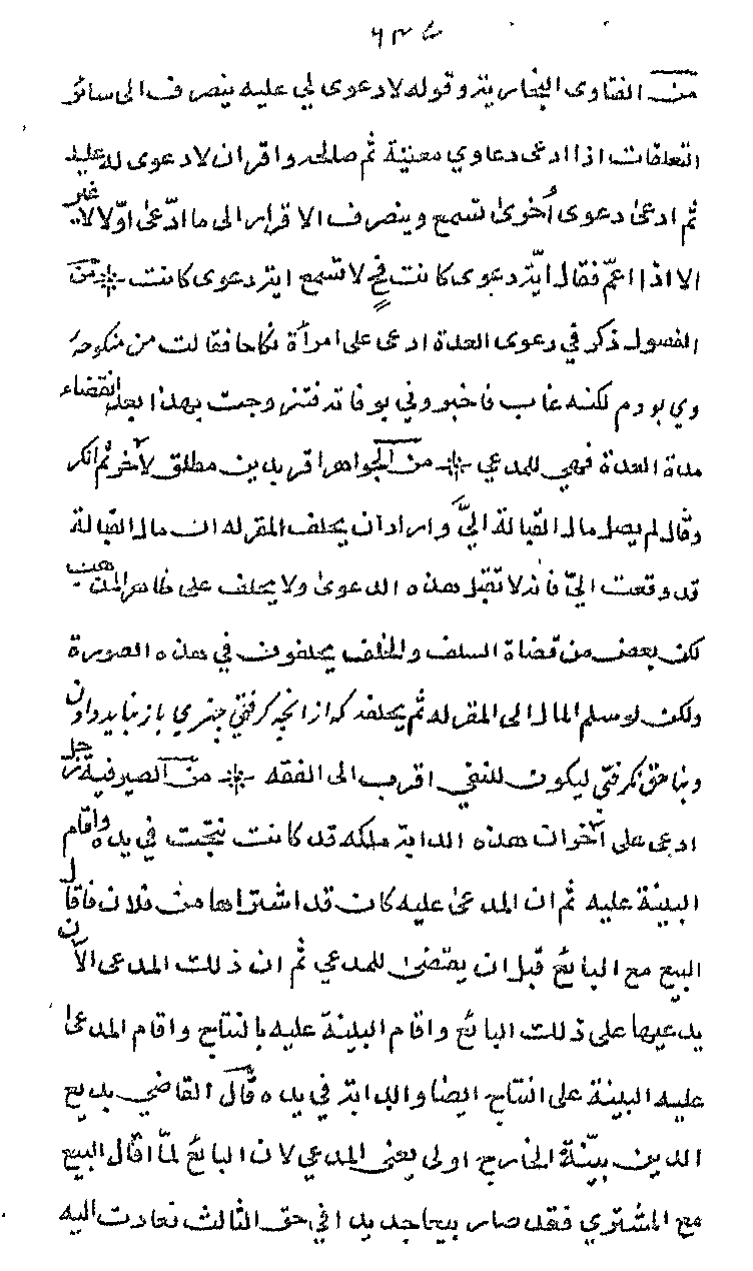 ٦٣٤
من الفتاوى البخارية وقوله لا دعوى لي عليه ينصرف الى سائر
التعلقات اذا ادعى دعاوي معينة ثم صالحه واقر ان لا دعوى له عليه
ثم ادعى دعوى أخرى تسمع وينصرف الاقرار الى ما ادّعى اوّلا لا غير
الا اذا اعمّ فقال ايّة دعوى كانت فح لا تسمع اية دعوى كانت ❊ من
الفصول ذكر في دعوى العدة ادعى على امرأة نكاحا فقالت من منكوحهٔ
وي بودم لكنه غاب فاخبروني بوفاته فتزوجت بهذا بعد انقضاء
مدة العدة فهي للمدعي ❊ من الجواهر اقر بدين مطلق لآخر ثم انكر
وقال لم يصل مال القبالة اليّ واراد ان يحلف المقر له ان مال القبالة
قد وقعت اليّ فانه لا تقبل هذه الدعوى ولا يحلف على ظاهر المذهب
لكن بعض من قضاة السلف والخلف يحلفون في هذه الصورة
ولكن لو سلم المال الى المقر له ثم يحلفه كه ازانچه گرفتي چيزي باز نبايد دادن
وبناحق نگرفتي ليكون للنفي اقرب الى الفقه ❊ من الصيرفية رجل
ادعى على آخر ان هذه الدابة ملكه قد كانت نتجت في يده واقام
البينة عليه ثم ان المدعى عليه كان قد اشتراها من فلان فاقال
البيع مع البائع قبل ان يقضى للمدعي ثم ان ذلك المدعى الآن
يدعيها على ذلك البائع واقام البينة عليه بالنتاج واقام المدعى
عليه البينة على النتاج ايضا والدابة في يده قال القاضي بديع
الدين بيّنة الخارج اولى يعنى المدعي لان البائع لمّا اقال البيع
مع المشتري فقد صار بيعا جديدا في حق الثالث فعادت اليه